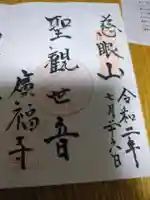 慈眼山
令和二年
七月二十六日
聖觀世音
廣福寺